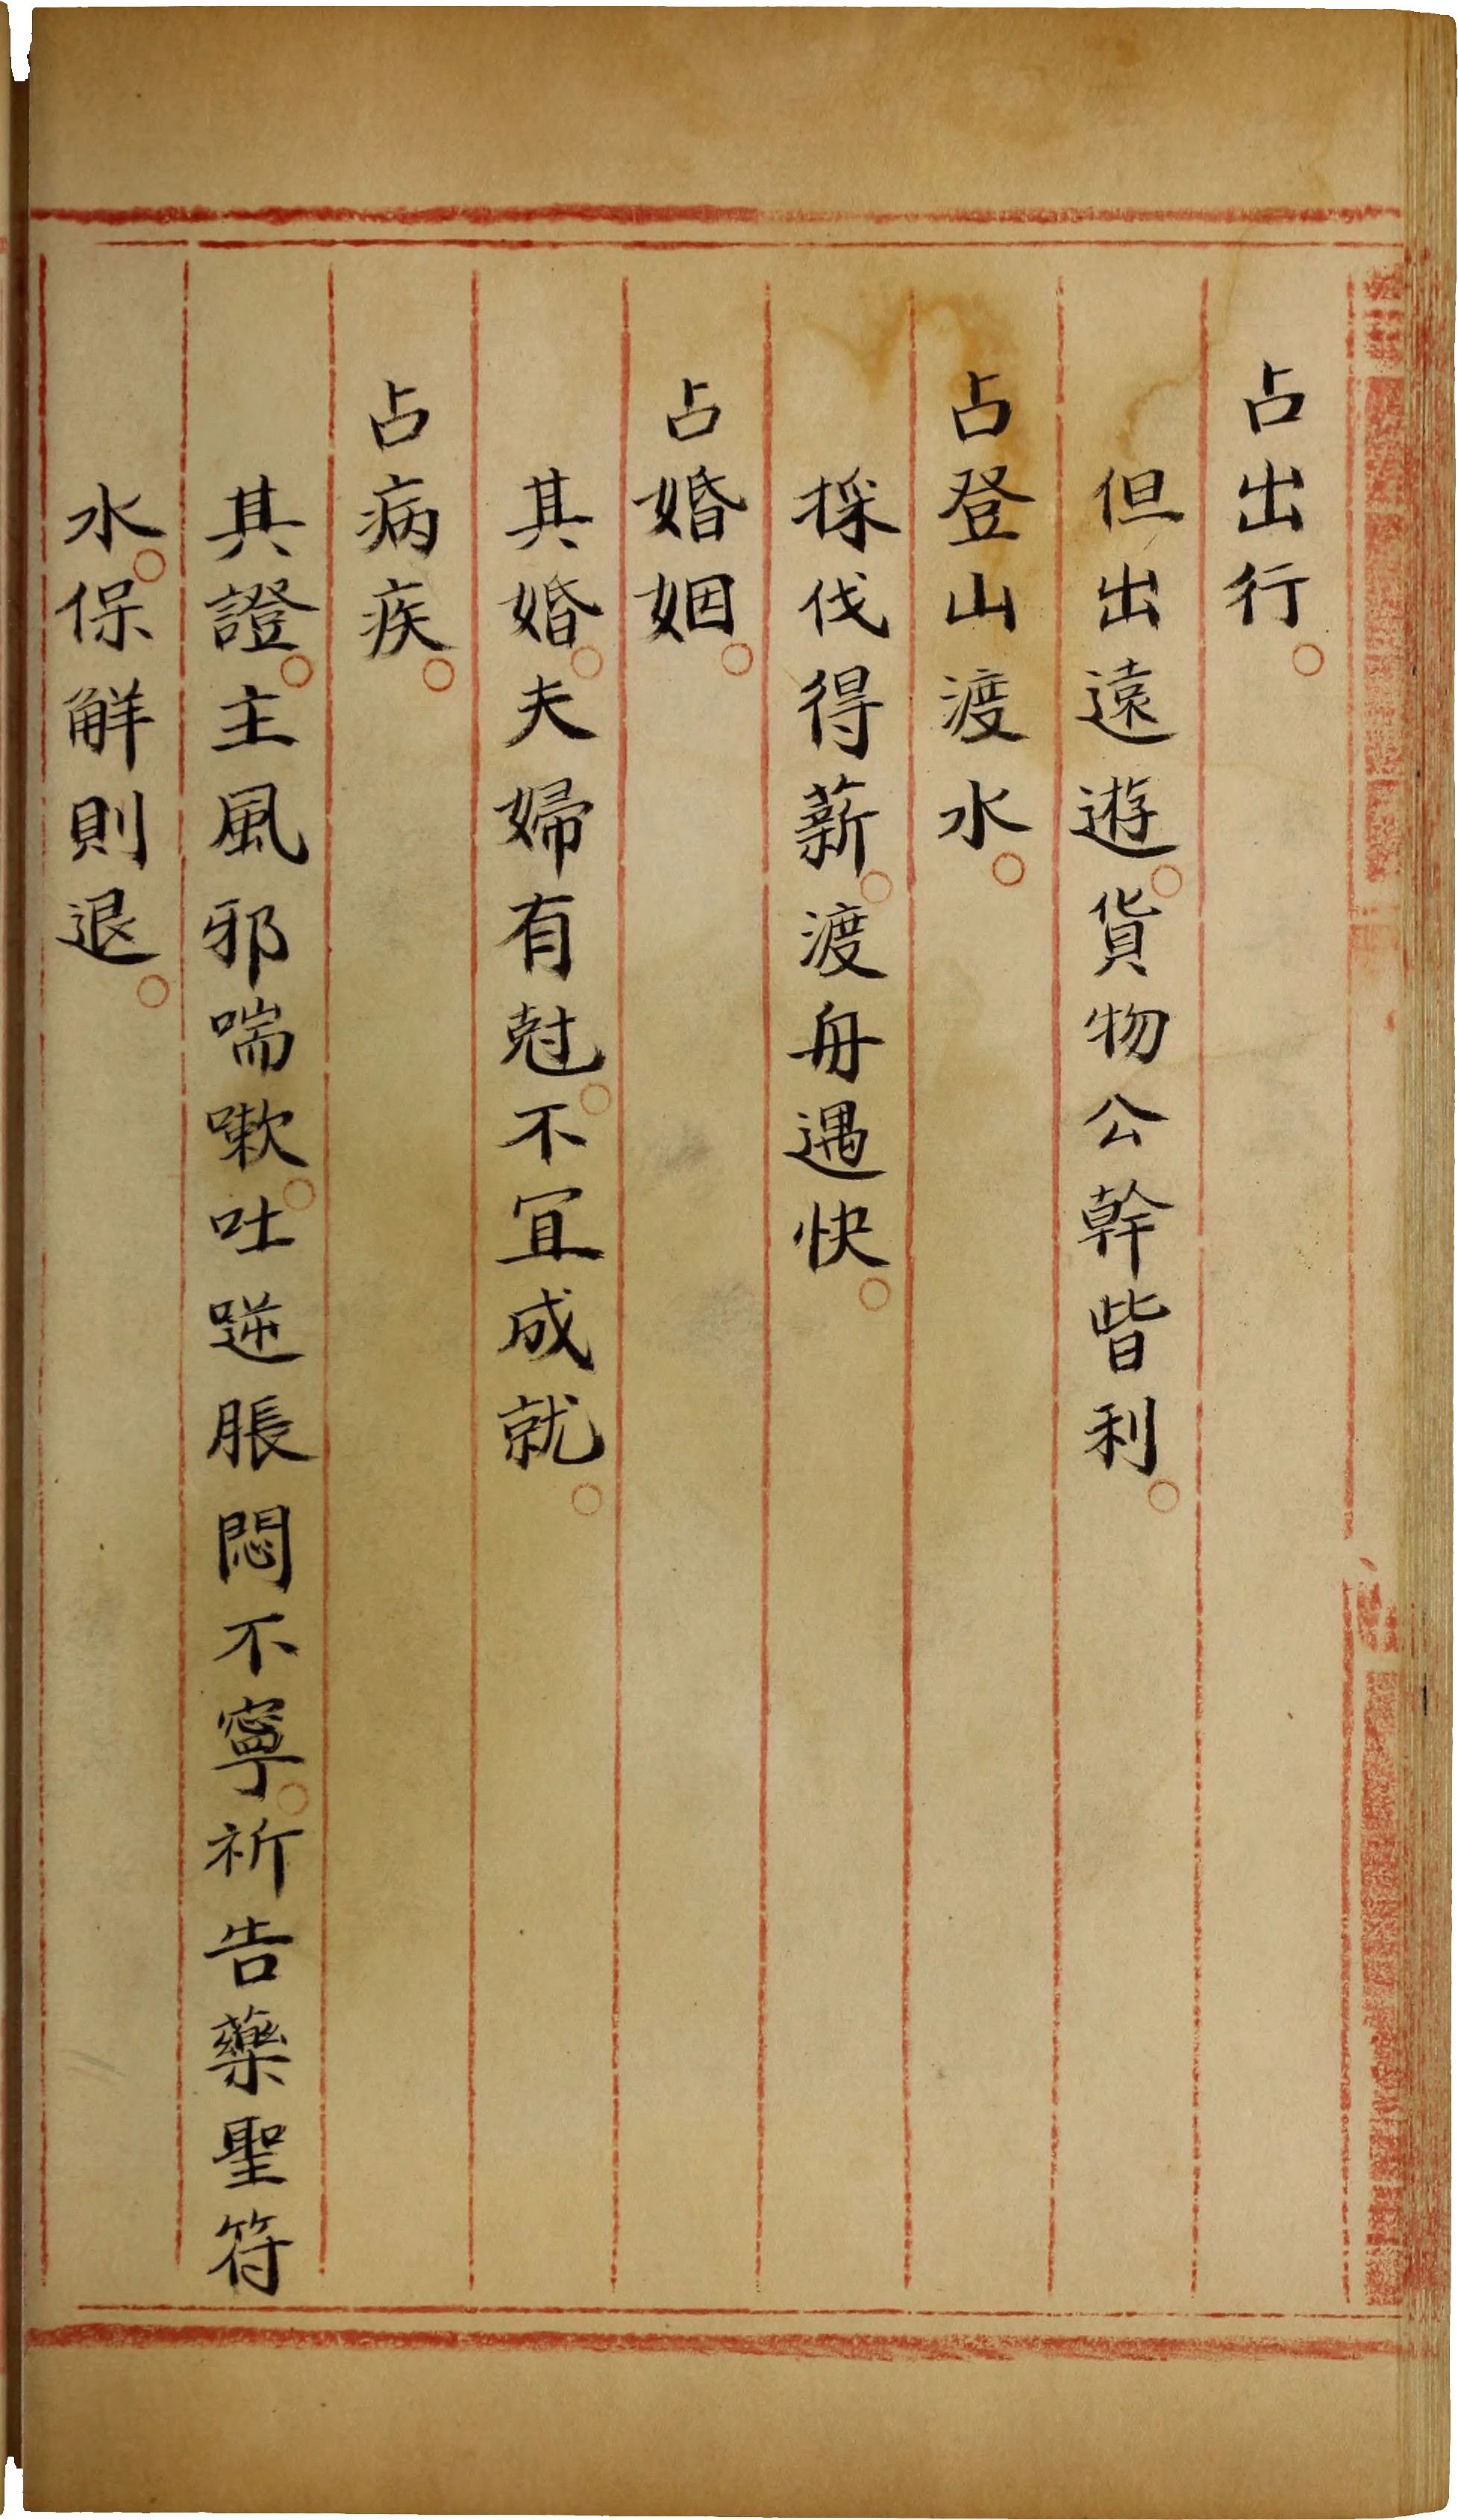 占出行。
但出遠遊。貨物公幹皆利。
占登山渡水。
採伐得薪。渡舟遇快。
占婚姻。
其婚。夫婦有尅。不宜成就。
占病疾。
其證。主風邪喘嗽。吐逆脹悶不寧。祈告藥聖符
水。保解則退。